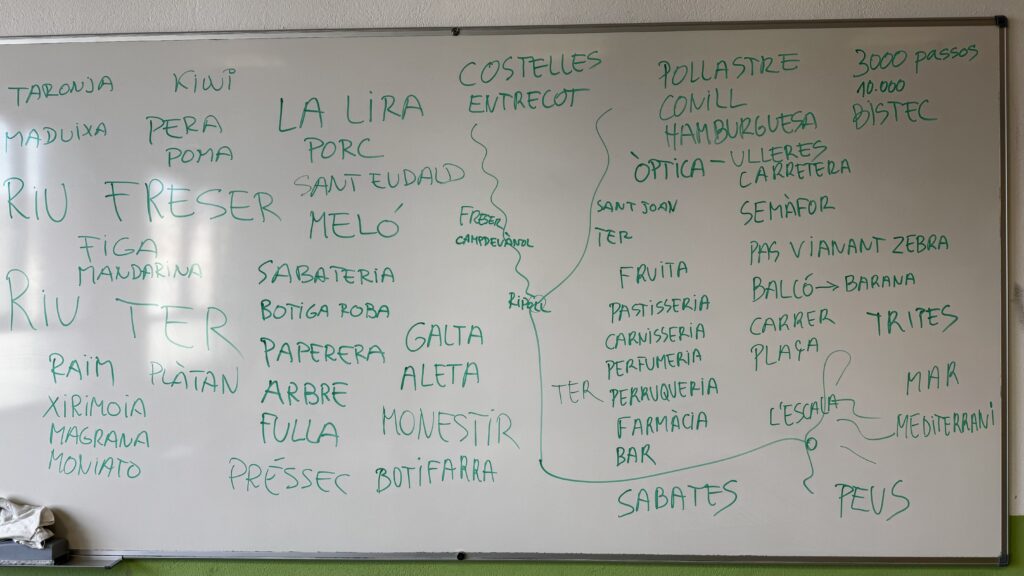 TARONJA
KIWI
MADUIXA
PERA
POMA
RIU FRESER
FIGA
MANDARINA
RIU TER
RAÏM
PLÀTAN
XIRIMOIA
MAGRANA
MONIATO
LA LIRA
PORC
SANT EUDALD
MELÓ
SABATERIA
BOTIGA ROBA
PAPERERA
ARBRE
FULLA
PRÉSSEC
GALTA
ALETA
MONESTIR
BOTIFARRA
COSTELLES
ENTRECOT
FRESER
CAMPDEVÀNOL
RIPOLL
SANT JOAN
TER
FRUITA
PASTISSERIA
CARNISSERIA
PERFUMERIA
TER
PERRUQUERIA
FARMÀCIA
BAR
SABATES
POLLASTRE
CONILL
HAMBURGUESA
ÒPTICA - ULLERES
CARRETERA
SEMÀFOR
PAS VIANANT ZEBRA
BALCÓ → BARANA
CARRER
PLAÇA
TRITES
L'ESCALA
MAR
MEDITERRANI
PEUS
3000 passos
10.000
BISTEC